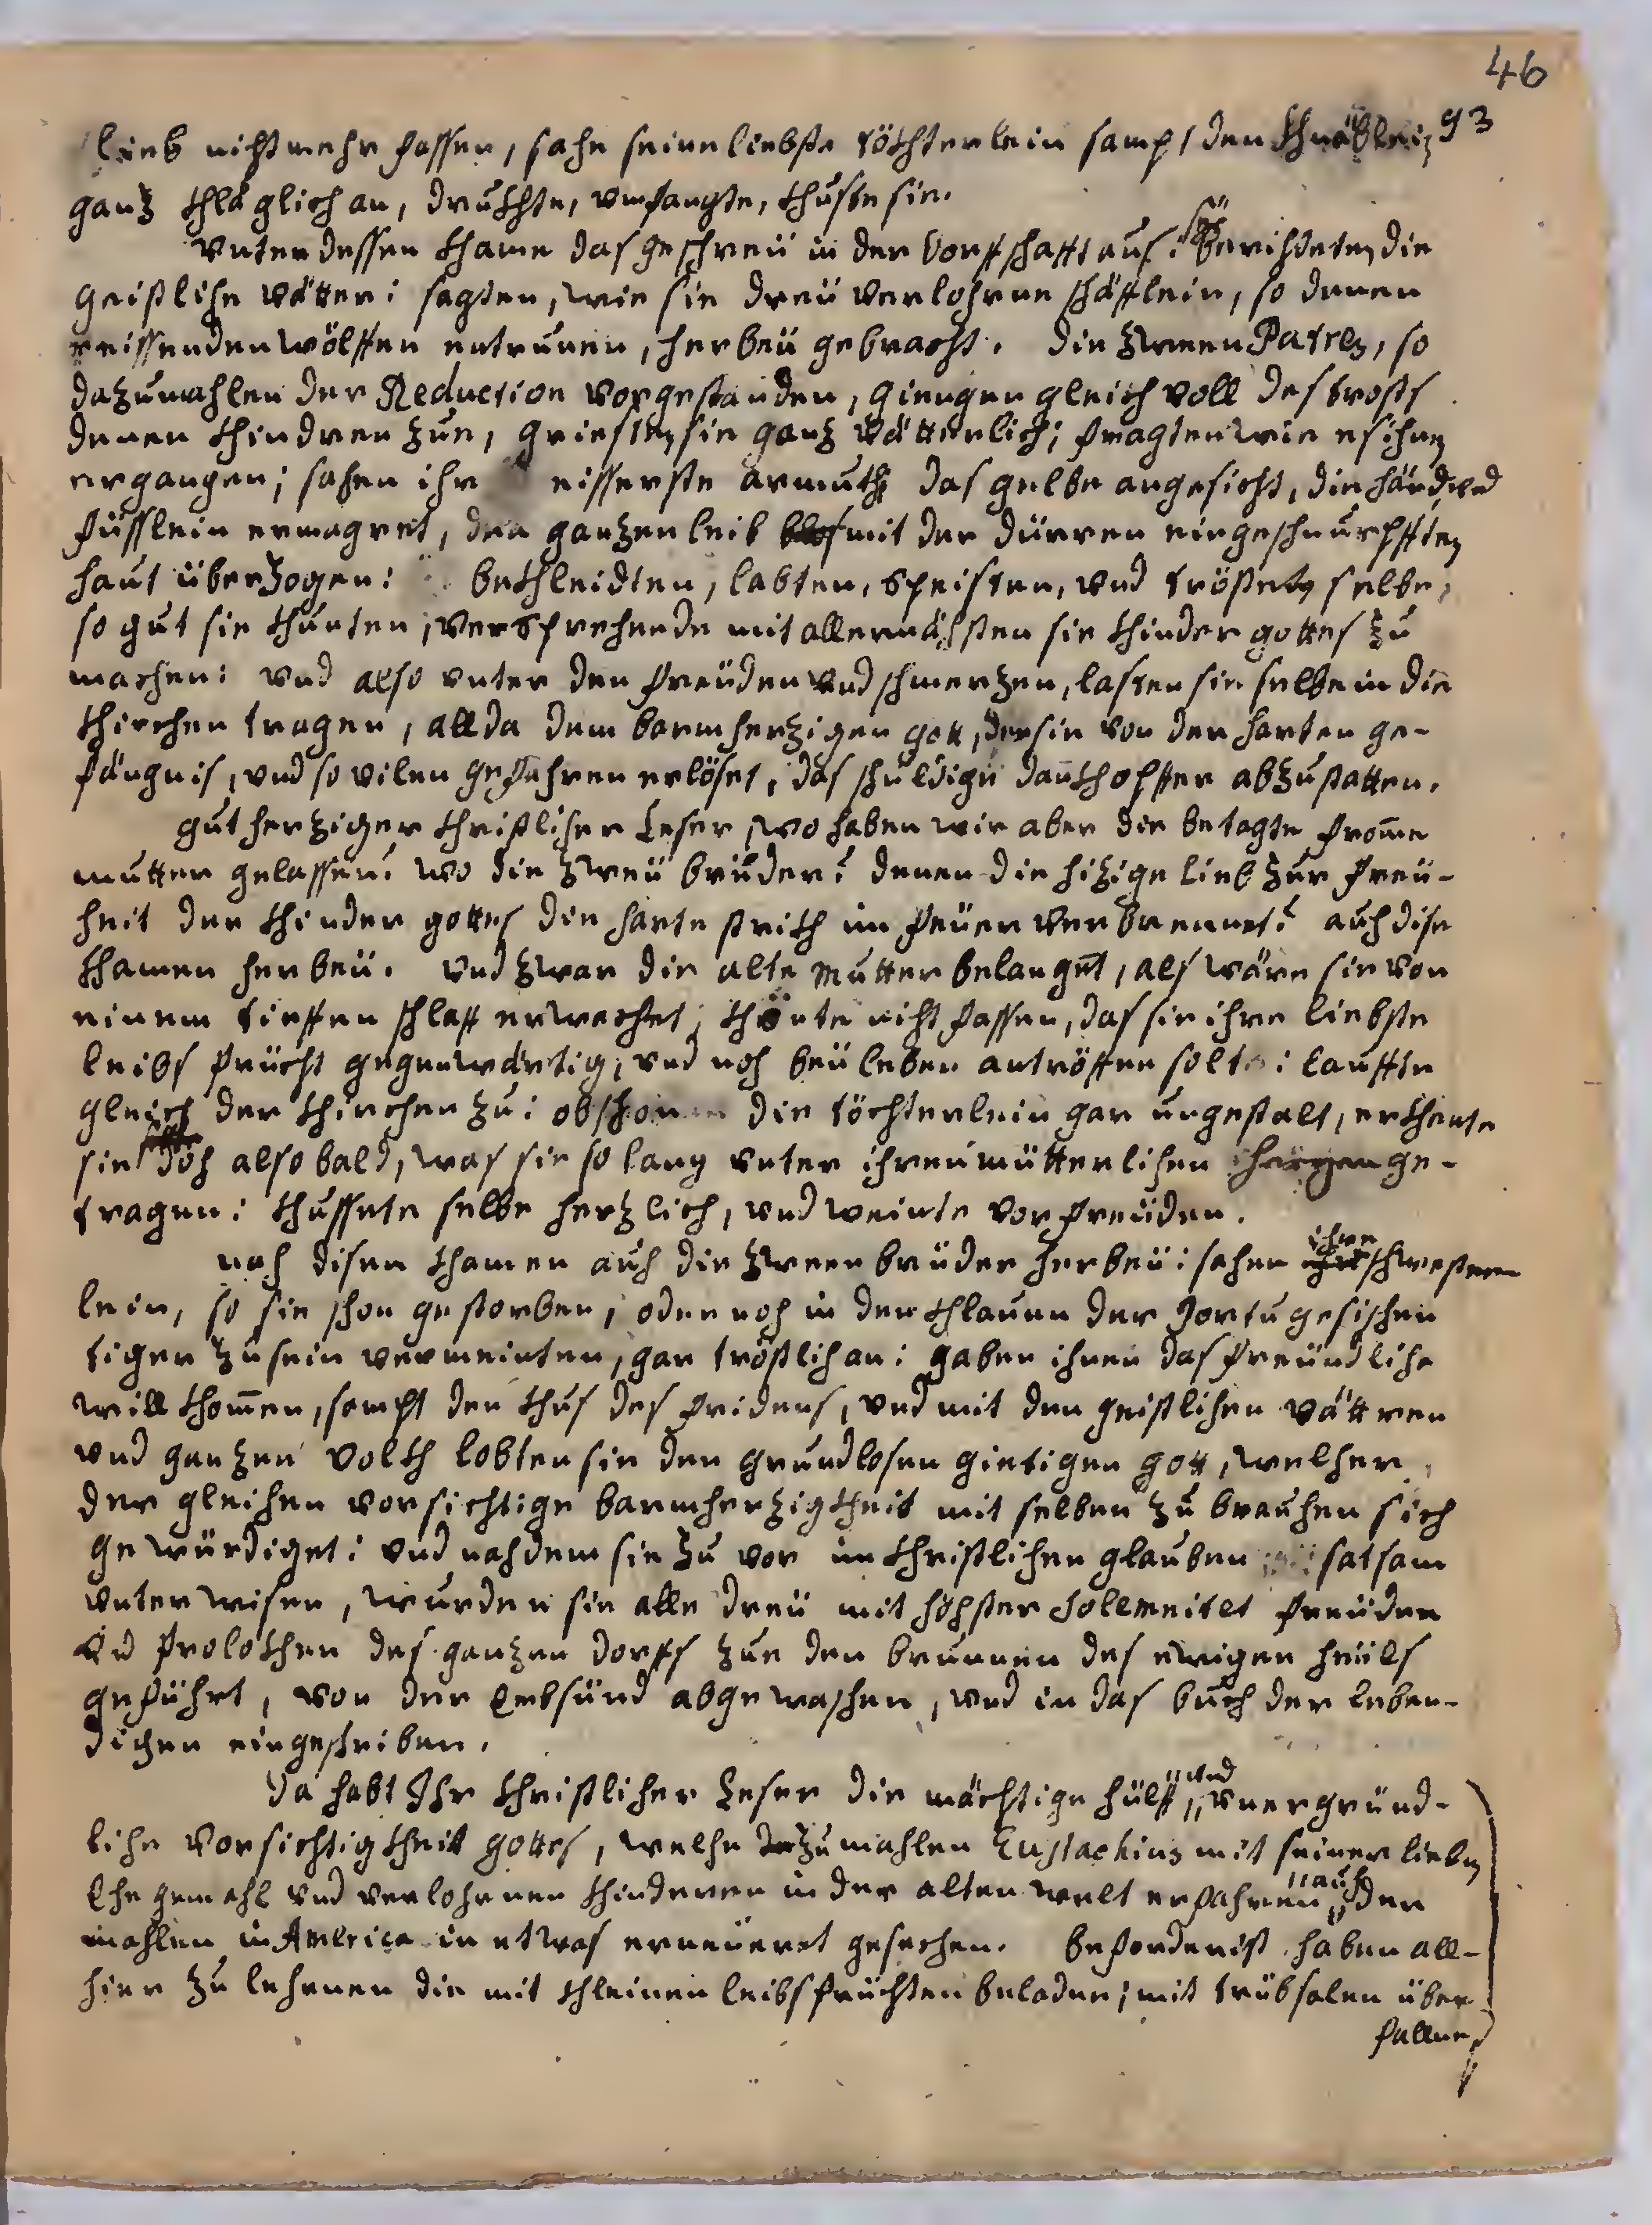 46
93
lieb nicht mehr fassen, sahe seine liebste töchterlein sampt den khnäblein
ganz khläglich an, drukhte, umfangte, khuste sie.
Unterdessen khame das geschreü in der Dorffschafft aus: sie berichteten die
geistliche vätter: sagten, wie sie dreü verlohrne schäfflein, so denen
reissenden wölffen entrunen, herbeü gebracht. Die zween Patres, so
dazumahlen der Reduction vorgestanden, giengen gleich voll des trosts
denen khindren zue, griesten sie ganz vätterlich; fragten wie es ihnen
ergangen; sahen ihr eisserste armuth das gelbe angesicht, die händ und
füsslein ermagret, den ganzen leib mit der dürren eingeschnurpfften
haut überzogen: bekhleidten, labten, speisten, und trösteten selbe,
so gut sie khunten, versprechende mit allernächsten sie khinder gottes zu
machen: und also unter den freüden und schmerzen, lasten sie selbe in die
khirchen tragen, allda dem barmherzigen gott, der sie von der harten ge-
fängnis, und so vilen gefahren erlöset, das schuldige dankhopffer abzustatten.
gutherziger khristlicher Leser, wo haben wir aber die betagte fromme
mutter gelassen? wo die zweü brüder? denen die hizige lieb zur freü-
heit der khinder gottes die harte strikh im feüer verbrennet? auch dise
khamen herbeü. und zwar die alte mutter belanget, als wäre sie von
einem tieffen schlaff erwachet, khönte nicht fassen, das sie ihre liebste
leibs frücht gegenwärtig, und noch beü leben antröffen solte: lauffte
gleich der khirchen zu: obschon die töchterlein gar ungestalt, erkhante
sie doch also bald, was sie so lang unter ihren mütterlichen herzen ge-
tragen: khussete selbe herzlich, und weinte vor freüden.
nach disen khamen auch die zween brüder herbeü: sahen ihre schwester
lein, so sie schon gestorben, oder noch in der khlauen der Portugesischen
tiger zu sein vermeinten, gar tröstlich an: gaben ihnen das freündliche
willkhommen, sampt den khus des fridens, und mit den geistlichen vättren
und ganzen volkh lobten sie den grundlosen gietigen gott, welcher
der gleichen vorsichtige barmherzigkheit mit selben zu brauchen sich
gewürdiget: und nachdem sie zu vor im khristlichen glauben satsam
unterwisen, wurden sie alle dreü mit höchster Solemnitet freüden
und frolokhen des ganzen dorfs zue den brunnen des ewigen heüls
geführt, von der Erbsünd abgewaschen, und in das buch der leben-
digen eingeschriben.
Da habt Ihr khristlicher Leser die mächtige hülff, und unergründ-
liche vorsichtigkheit gottes, welche dazumahlen Eustachius mit seiner lieben
Ehegemahl und verlohrnen khinderen in der alten welt erfahren, auch der
mahlen in America in etwas erneüeret gesechen. Beforderist haben all-
hier zu lehrnen die mit khleinen leibsfrüchten beladen; mit trübsalen über
fallne